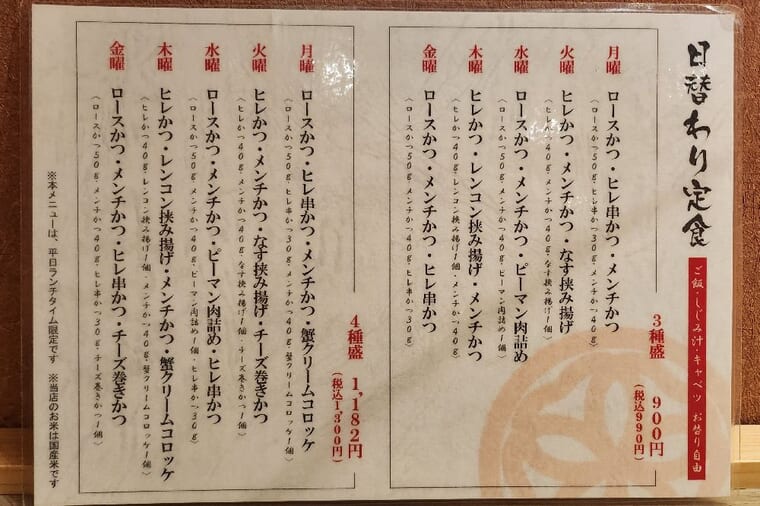 日替わり定食
ご飯・しじみ汁・キャベツ お替り自由
3種盛 900円
(税込990円)
月曜 ロースかつ・ヒレ串かつ・メンチかつ
(ロースかつ50g・ヒレ串かつ30g・メンチかつ40g)
火曜 ヒレかつ・メンチかつ・なす挟み揚げ
(ヒレかつ40g・メンチかつ40g・なす挟み揚げ1個)
水曜 ロースかつ・メンチかつ・ピーマン肉詰め
(ロースかつ50g・メンチかつ40g・ピーマン肉詰め1個)
木曜 ヒレかつ・レンコン挟み揚げ・メンチかつ
(ヒレかつ40g・レンコン挟み揚げ1個・メンチかつ40g)
金曜 ロースかつ・メンチかつ・ヒレ串かつ
(ロースかつ50g・メンチかつ40g・ヒレ串かつ30g)
4種盛 1,182円
(税込1,300円)
月曜 ロースかつ・ヒレ串かつ・メンチかつ・蟹クリームコロッケ
(ロースかつ50g・ヒレ串かつ30g・メンチかつ40g・蟹クリームコロッケ1個)
火曜 ヒレかつ・メンチかつ・なす挟み揚げ・チーズ巻きかつ
(ヒレかつ40g・メンチかつ40g・なす挟み揚げ1個・チーズ巻きかつ1個)
水曜 ロースかつ・メンチかつ・ピーマン肉詰め・ヒレ串かつ
(ロースかつ50g・メンチかつ40g・ピーマン肉詰め1個・ヒレ串かつ30g)
木曜 ヒレかつ・レンコン挟み揚げ・メンチかつ・蟹クリームコロッケ
(ヒレかつ40g・レンコン挟み揚げ1個・メンチかつ40g・蟹クリームコロッケ1個)
金曜 ロースかつ・メンチかつ・ヒレ串かつ・チーズ巻きかつ
(ロースかつ50g・メンチかつ40g・ヒレ串かつ30g・チーズ巻きかつ1個)
※本メニューは、平日ランチタイム限定です ※当店のお米は国産米です